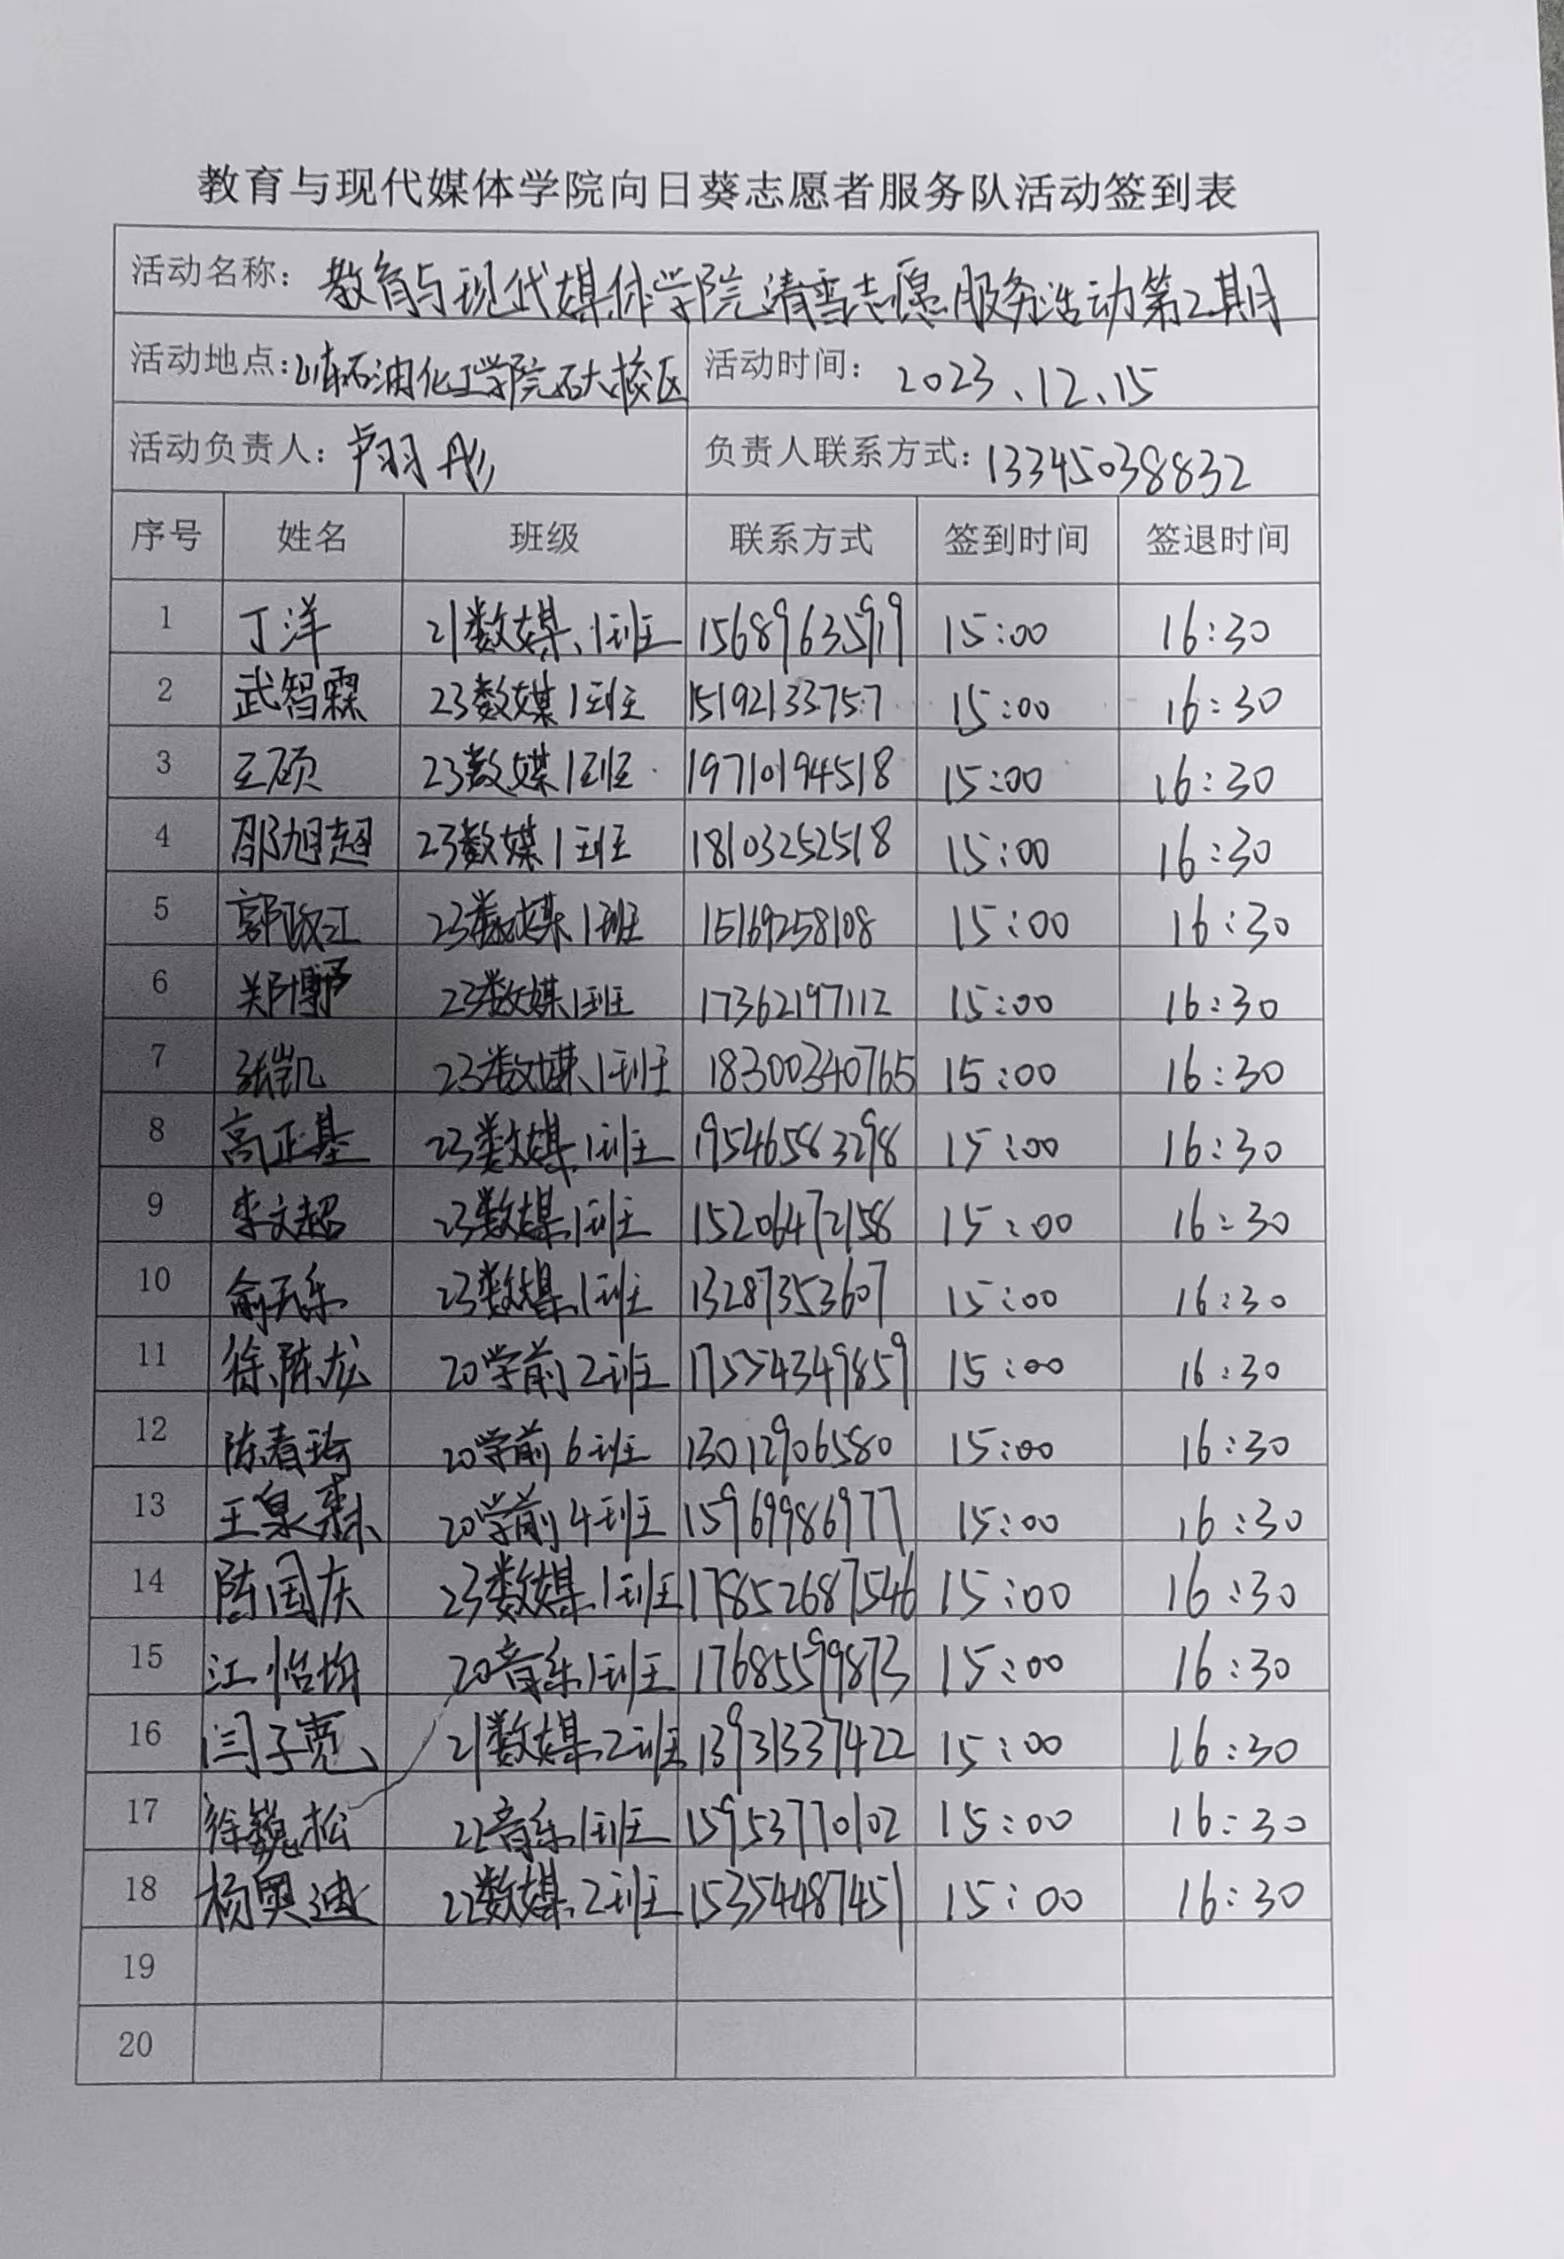 教育与现代媒体学院向日葵志愿者服务队活动签到表
活动名称：教育与现代媒体学院清雪志愿服务活动第2期
活动地点：山东石油化工学院石大校区 活动时间：2023、12、15
活动负责人：卢羽彤 负责人联系方式：13345038832
序号 姓名 班级 联系方式 签到时间 签退时间
1 丁洋 21数媒1班 15689635919 15:00 16:30
2 武智霖 23数媒1班 15192133757 15:00 16:30
3 王硕 23数媒1班 19710194518 15:00 16:30
4 邵旭超 23数媒1班 18103252518 15:00 16:30
5 郭政江 23数媒1班 15169258108 15:00 16:30
6 郑博 23数媒1班 17362197112 15:00 16:30
7 张凯 23数媒1班 18300340765 15:00 16:30
8 高正基 23数媒1班 19546583298 15:00 16:30
9 李文超 23数媒1班 15206472158 15:00 16:30
10 俞天乐 23数媒1班 13287353607 15:00 16:30
11 徐陈龙 20学前2班 17554349859 15:00 16:30
12 陈春琦 20学前6班 13012906580 15:00 16:30
13 王泉森 20学前4班 15969986977 15:00 16:30
14 陈国庆 23数媒1班 17852687546 15:00 16:30
15 江怡均 20音乐1班 17685599873 15:00 16:30
16 闫子宽 21数媒2班 13931337422 15:00 16:30
17 徐巍松 22音乐1班 15953770102 15:00 16:30
18 杨奥迪 22数媒2班 15354487451 15:00 16:30
19
20